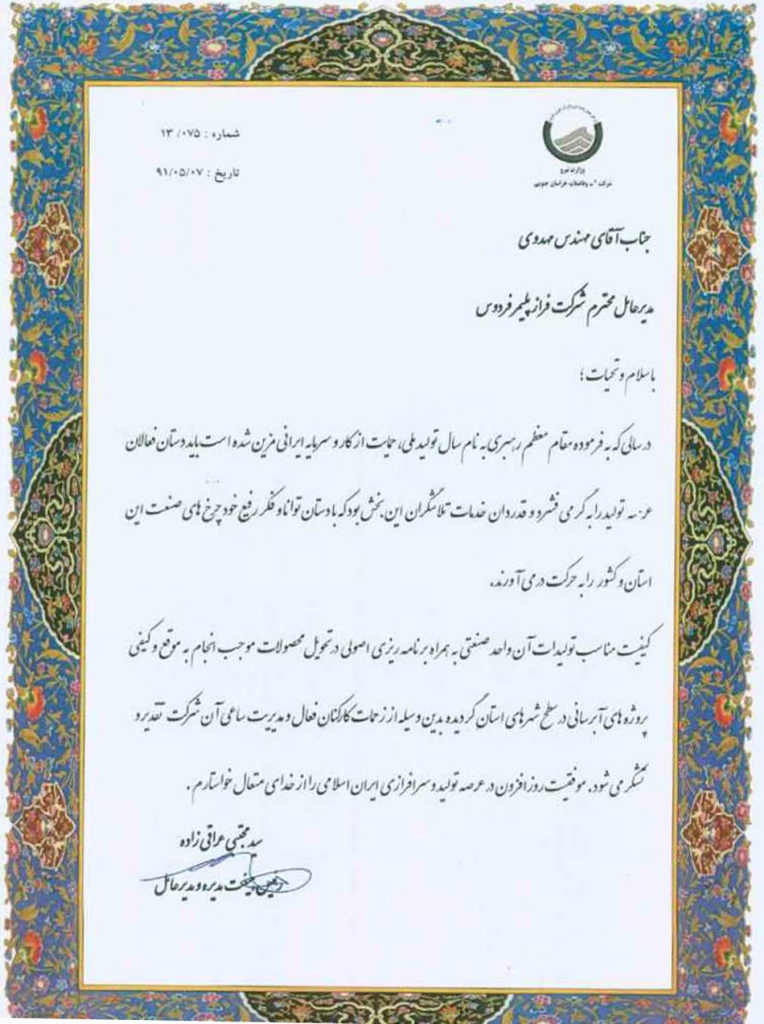 شماره : ۱۳/۰۷۵
تاریخ : ۹۱/۰۵/۰۷
وزارت نیرو
شرکت آب وفاضلاب خراسان جنوبی
جناب آقای مهندس مهدوی
مدیرعامل محترم شرکت فراز پلیمر فردوس
باسلام و تحیات ؛
در سالی که به فرموده مقام معظم رهبری به نام سال تولید ملی، حمایت از کار و سرمایه ایرانی مزین شده است باید دستان فعالان
عرصه تولید را به گرمی فشرد و قدردان خدمات تلاشگران این بخش بود که با دستان توانا و فکر رفیع خود چرخ های صنعت این
استان و کشور را به حرکت در می آورند.
کیفیت مناسب تولیدات آن واحد صنعتی به همراه برنامه ریزی اصولی در تحویل محصولات موجب انجام به موقع و کیفی
پروژه های آبرسانی در سطح شهرهای استان گردیده بدین وسیله از زحمات کارکنان فعال و مدیریت ساعی آن شرکت تقدیر و
تشکر می شود. موفقیت روز افزون در عرصه تولید و سرافرازی ایران اسلامی را از خدای متعال خواستارم .
سید مجتبی عراقی زاده
رئیس هیئت مدیره و مدیرعامل